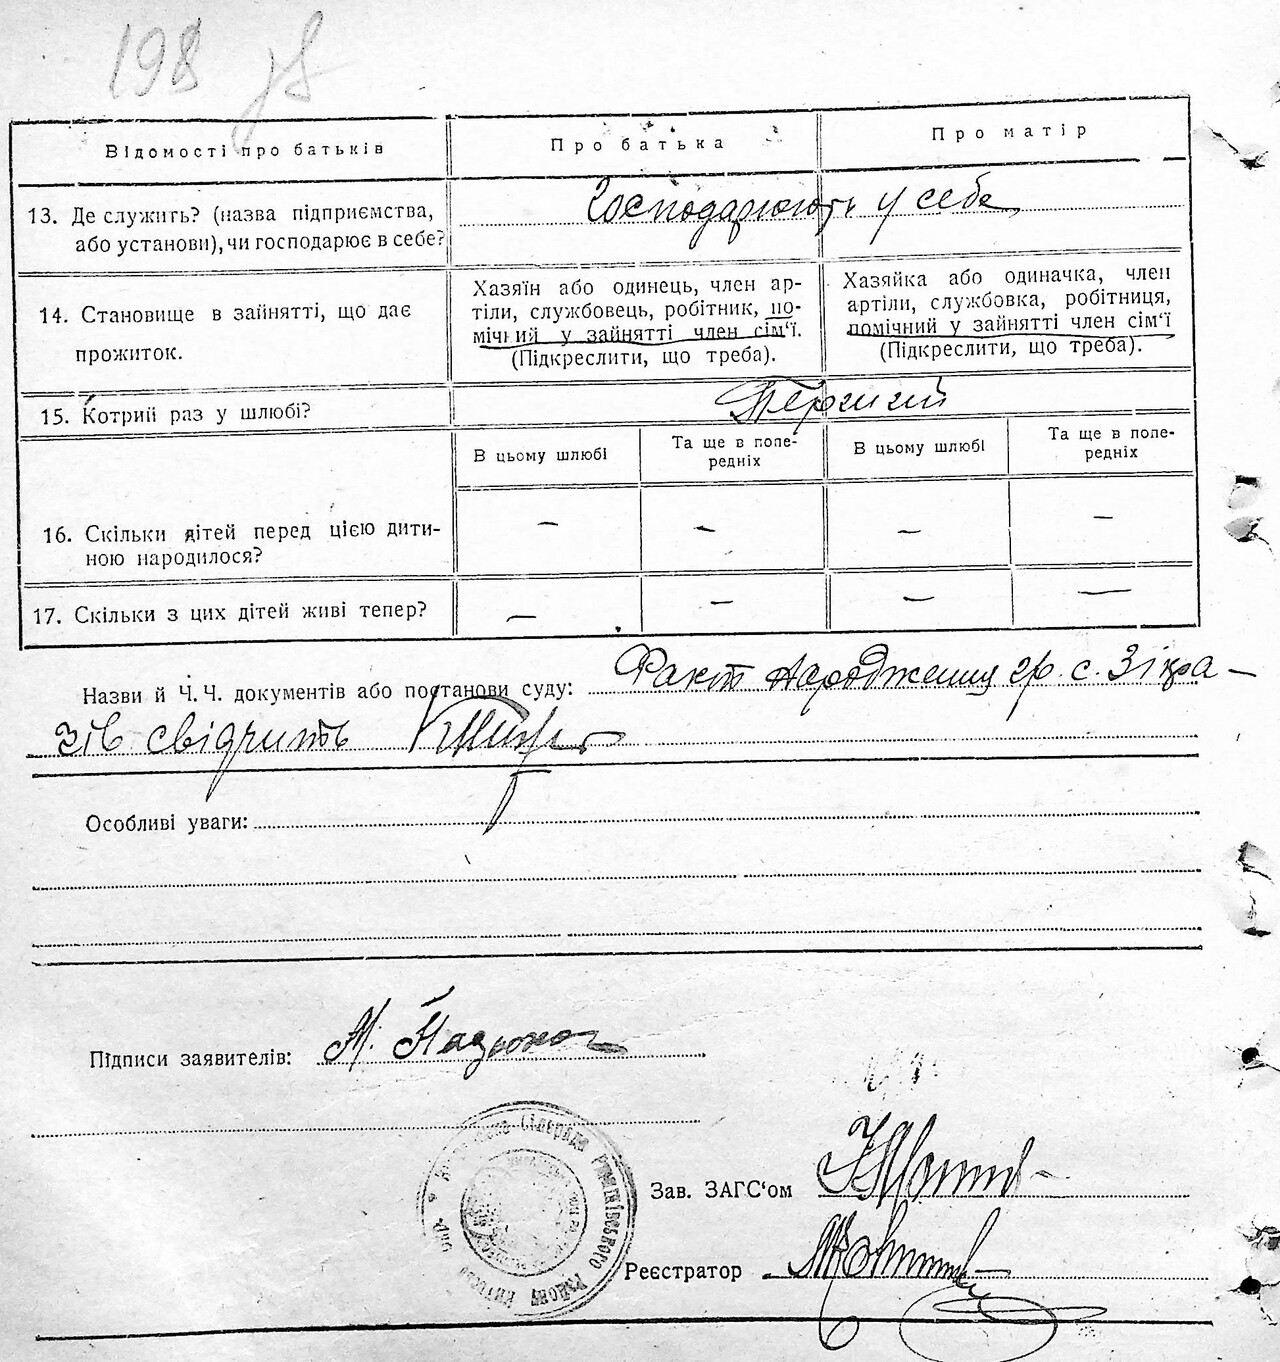 198 зв
Відомості про батьків
Про батька
Про матір
13. Де служить? (назва підприємства,
або установи), чи господарює в себе?
Господарюють у себе
14. Становище в зайнятті, що дає
прожиток.
Хазяїн або одинець, член ар-
тіли, службовець, робітник, по-
мічний у зайнятті член сім'ї.
(Підкреслити, що треба).
Хазяйка або одиначка, член
артіли, службовка, робітниця,
помічний у зайнятті член сім'ї
(Підкреслити, що треба).
15. Котрий раз у шлюбі?
Перший
В цьому шлюбі
Та ще в попе-
редніх
В цьому шлюбі
Та ще в попе-
редніх
16. Скільки дітей перед цією дити-
ною народилося?
— — — —
17. Скільки з цих дітей живі тепер?
— — — —
Назви й Ч. Ч. документів або постанови суду: Факт народження гр. с.
свідчить
Особливі уваги:
Підписи заявителів: М.
Зав. ЗАГС'ом
Реєстратор
сільрада
району